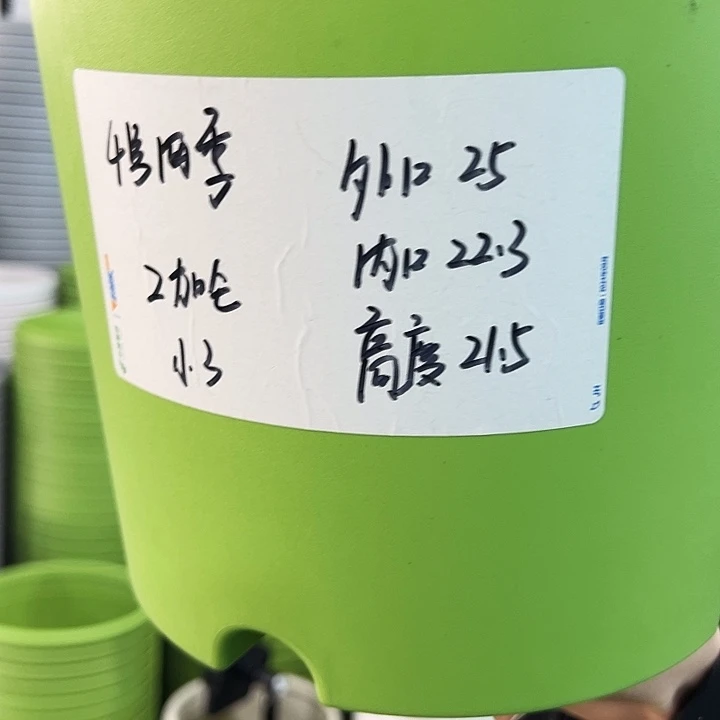 4号四季
2加仑
1.3
外口 25
内口 22.3
高度 21.5